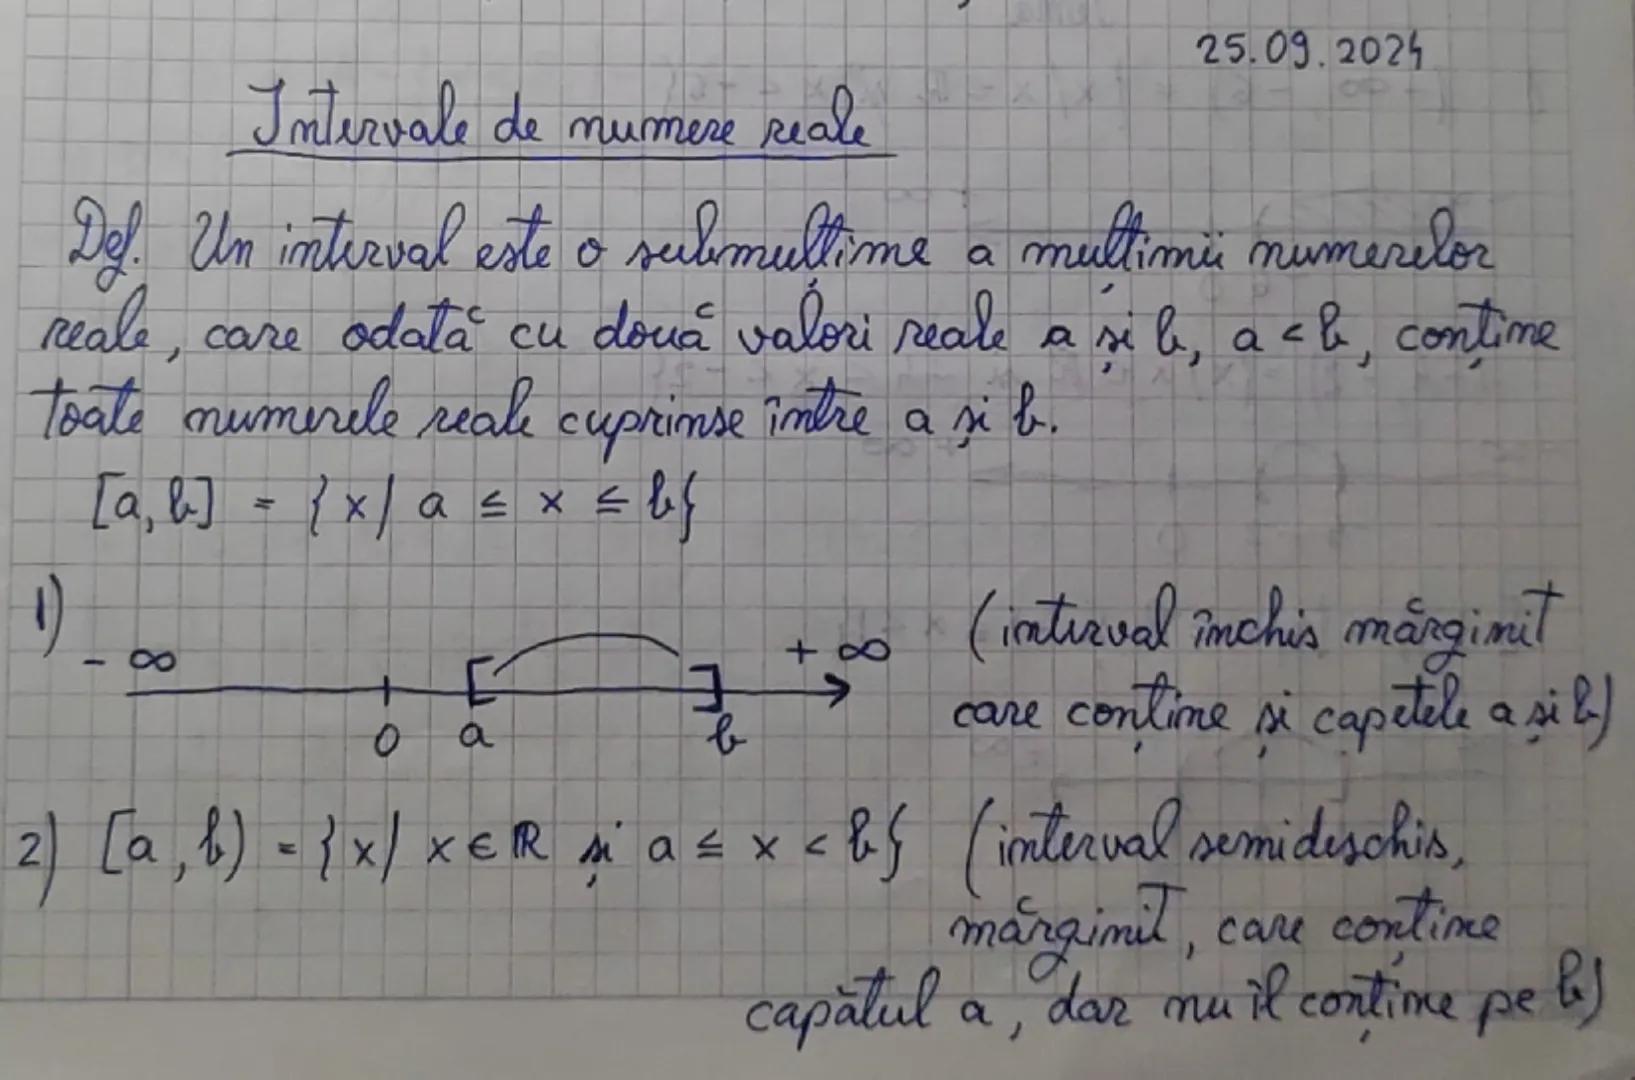 25.09.2024
Intervale de numere reale
Def. Un interval este o submulțime a mulțimii numerelor
reale, care odată cu două valori reale a și b, a < b, conține
toate numerele reale cuprinse între a și b.
[a, b] = {x | a ≤ x ≤ b}
1)
- ∞ [ ] + ∞ (interval închis mărginit
0 a b care conține și capetele a și b)
2) [a, b) = {x | x ∈ ℝ și a ≤ x < b} (interval semideschis,
mărginit, care conține
capătul a, dar nu îl conține pe b)